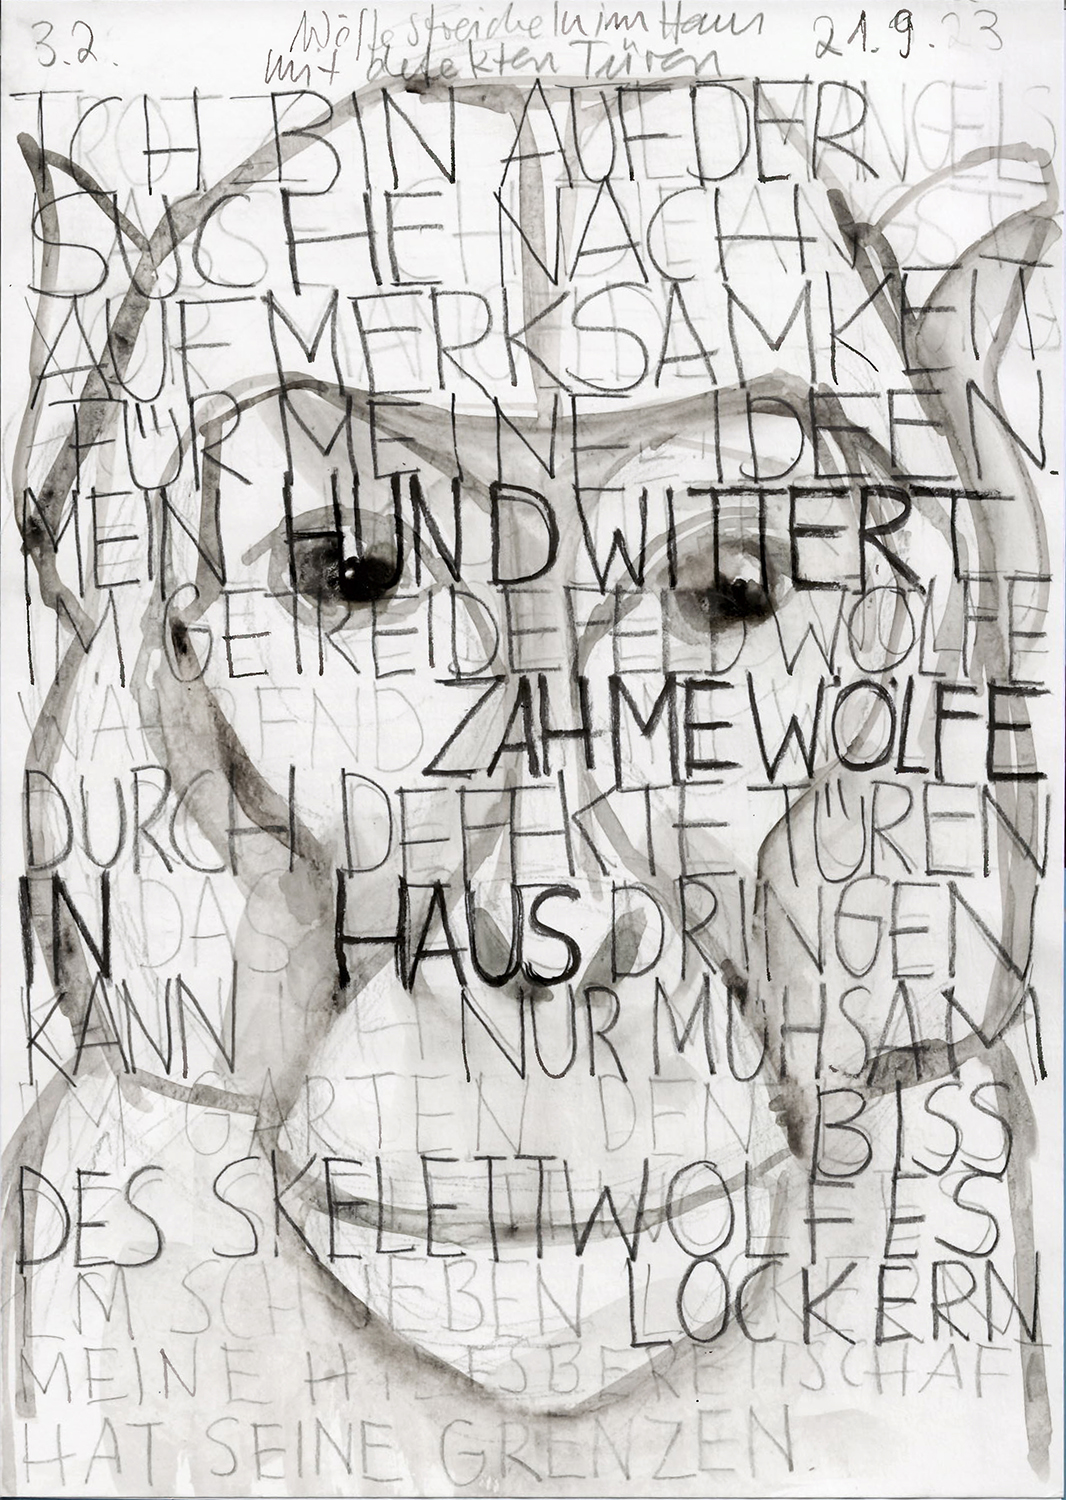 3.2. Wölfe streicheln im Haus 21.9.23
mit defekten Türen
ICH BIN AUF DER
SUCHE NACH
AUFMERKSAMKEIT
FÜR MEINE IDEEN.
MEIN HUND WITTERT
IM GETREIDEFELD WÖLFE
WÄHREND ZAHME WÖLFE
DURCH DEFEKTE TÜREN
IN DAS HAUS DRINGEN
KANN ICH NUR MÜHSAM
IM GARTEN DEN BISS
DES SKELETTWOLFES
LOCKERN
MEINE HILFSBEREITSCHAFT
HAT SEINE GRENZEN.